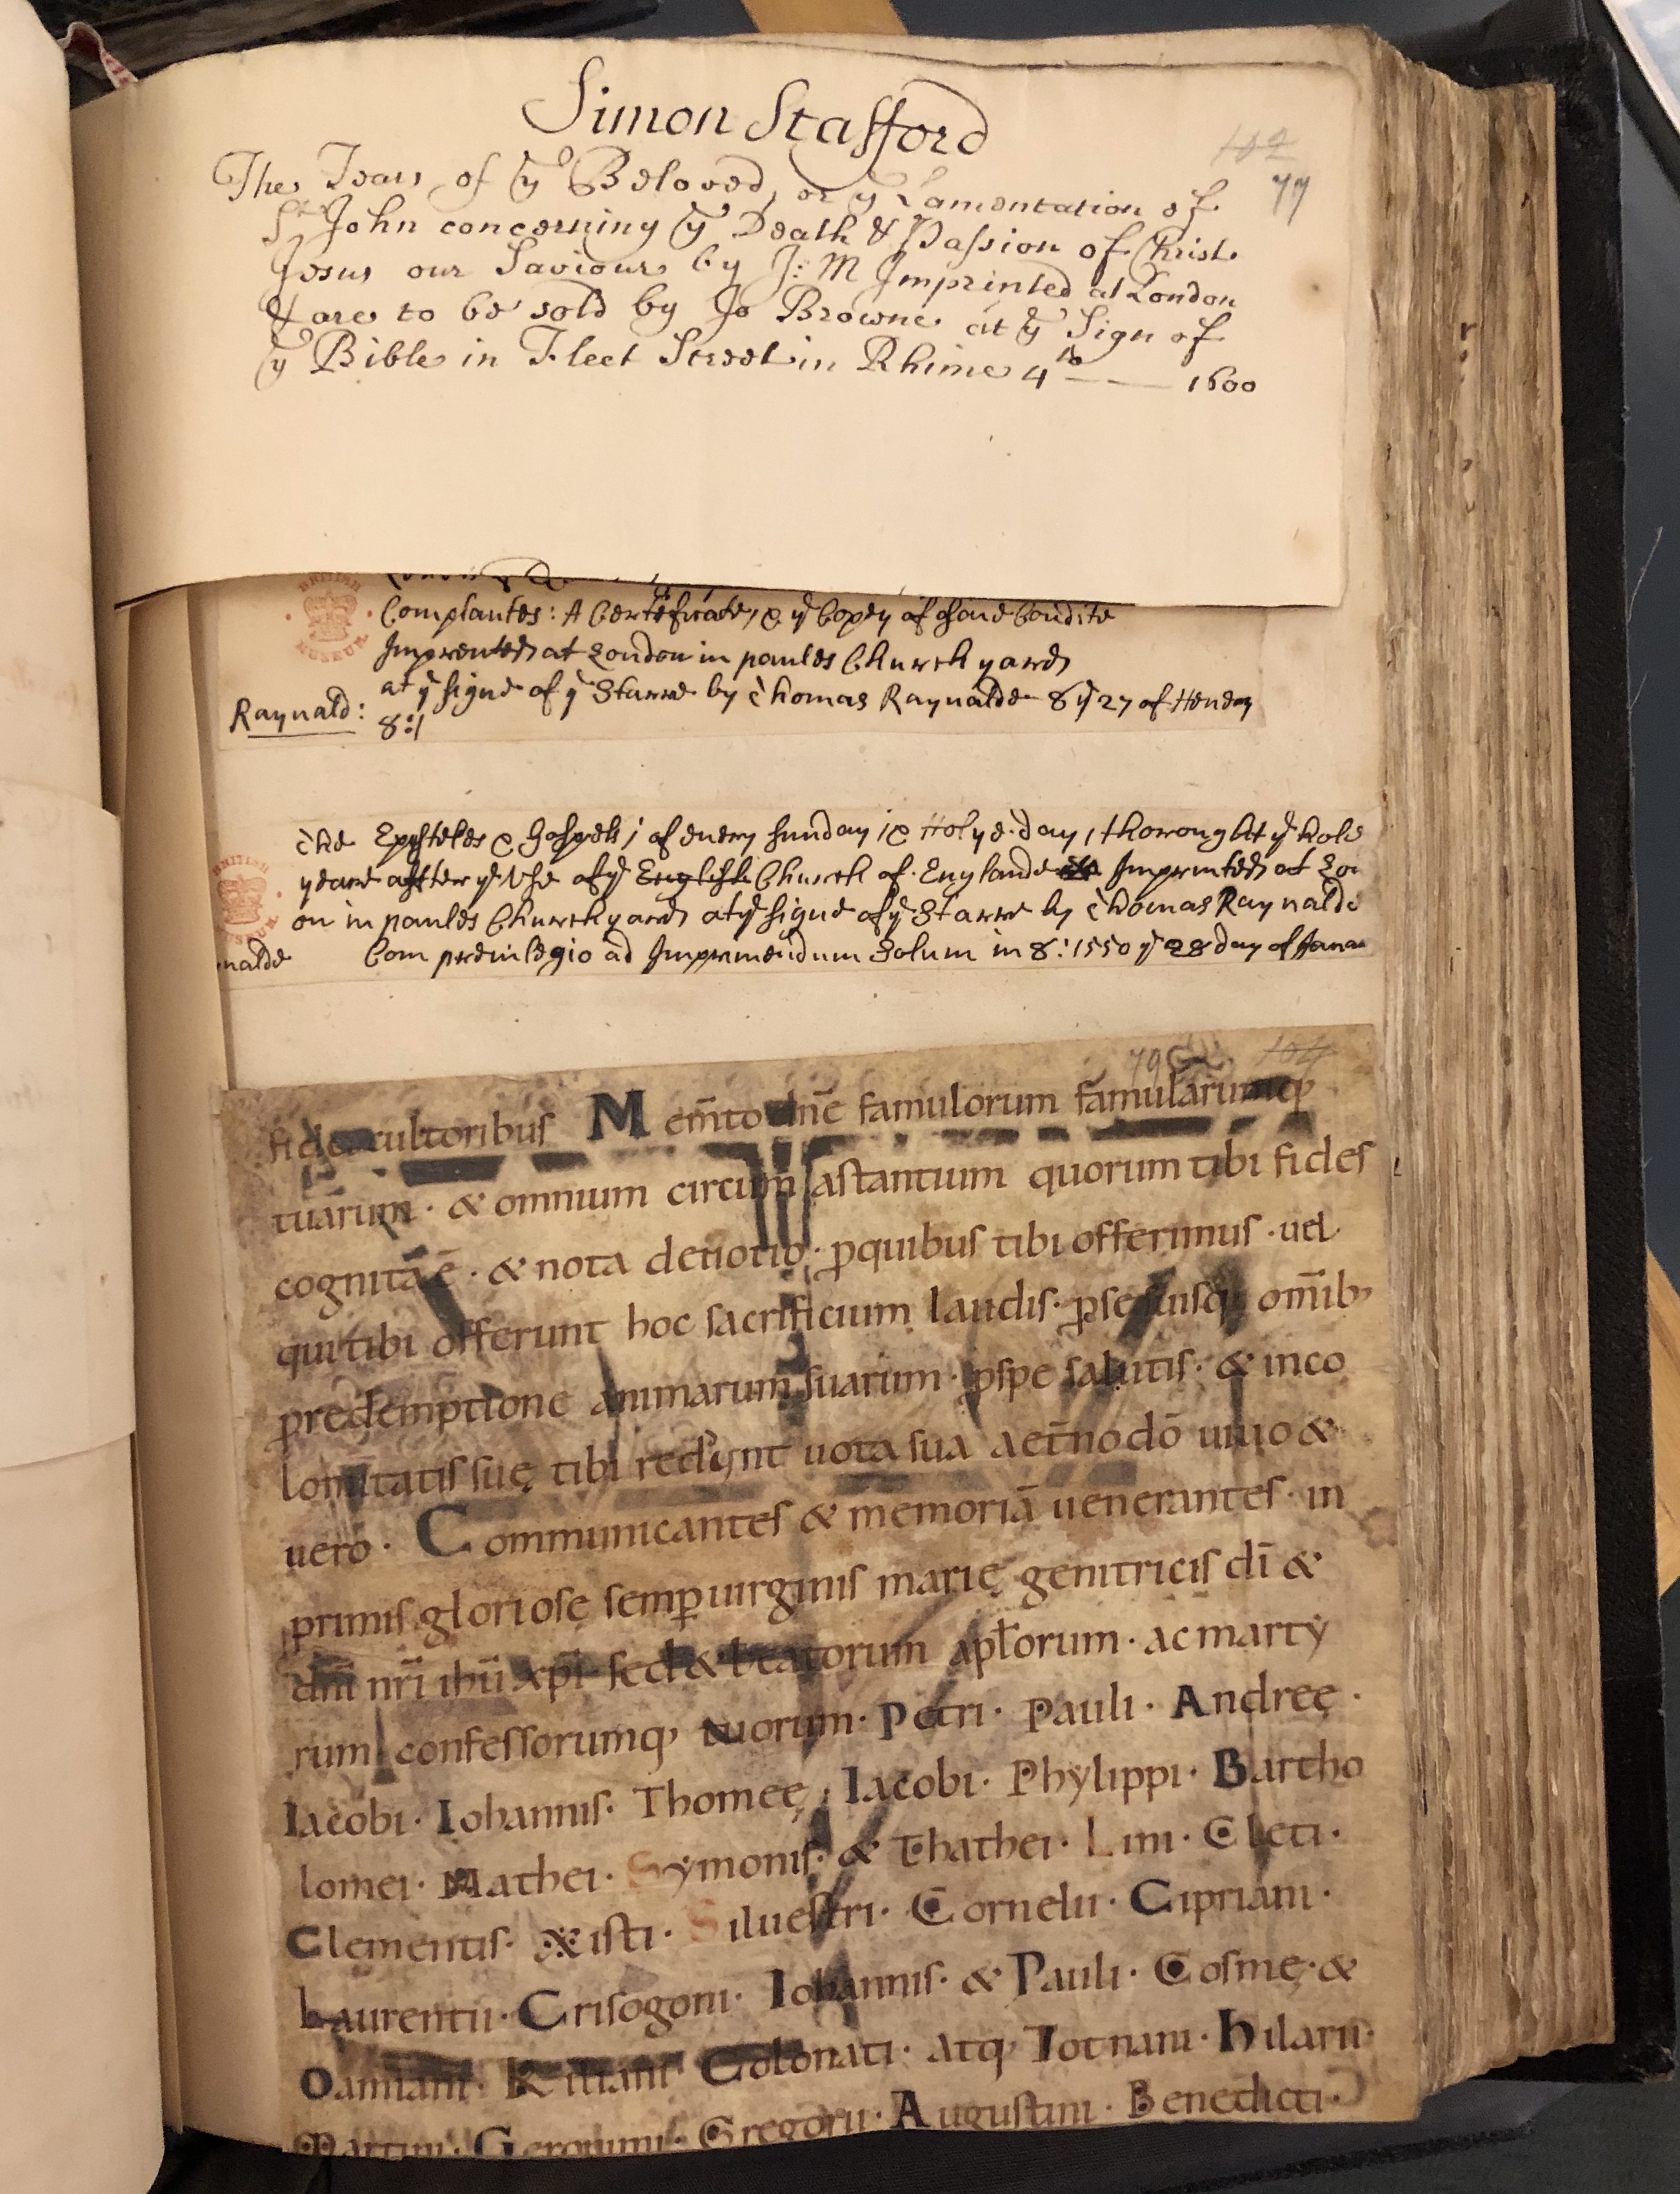 Simon Stafford
102
77
The Tears of yᵉ Beloved, or yᵉ Lamentation of
Sᵗ John concerning yᵉ Death & Passion of Christ
Jesus our Saviour by J: M Imprinted at London
& are to be sold by Jo Browne at yᵉ Sign of
yᵉ Bible in Fleet Street in Rhime 4ᵗᵒ —— 1600
BRITISH MUSEUM
Complantes: A Certeficate, & yᵉ Copey of
Imprented at London in paules Church yard
at yᵉ signe of yᵉ Starre by Thomas Raynalde 8 yᵉ 27 of Henery
Raynald: 8:/
BRITISH MUSEUM
The Epysteles & Gospels; of euery sunday & Holye.day, thorought yᵉ hole
yeare after yᵉ Vse of yᵉ English Church of Englande Imprinted at Lon
on in paules Church yard at yᵉ signe of yᵉ Starre by Thomas Raynalde
nalde Com preuilegio ad Imprimendum Solum in 8: 1550 yᵉ 28 day of Janua
79 104
fidei cultoribus Mem̄to dn̄e famulorum famularumq;
tuarum · & omnium circum astantium quorum tibi fides
cognitā ē · & nota deuotio · ꝓquibus tibi offerimus · uel
qui tibi offerunt hoc sacrificium laudis · ꝓse suisq; om̄ib;
ꝓredemptione animarum suarum · ꝓspe salutis · & inco
lomitatis suę tibi reddunt uota sua aet̄no dō uiuo &
uero · Communicantes & memoriā uenerantes · in
primis gloriosę semꝑ uirginis marię genitricis dī &
dn̄i nr̄i ihū xp̄i sed & beatorum apl̄orum · ac marty
rum confessorumq; tuorum · Petri · Pauli · Andreę ·
Iacobi · Iohannis · Thomeę · Iacobi · Phylippi · Bartho
lomei · Mathei · Symonis · & Thathei · Lini · Cleti ·
Clementis · Xisti · Siluestri · Cornelii · Cipriani ·
Laurentii · Crisogoni · Iohannis · & Pauli · Cosmę · &
Damiani · Kiliani Colonati · atq; Totnani · Hilarii ·
Martini · Geronimi · Gregorii · Augustini · Benedicti ·